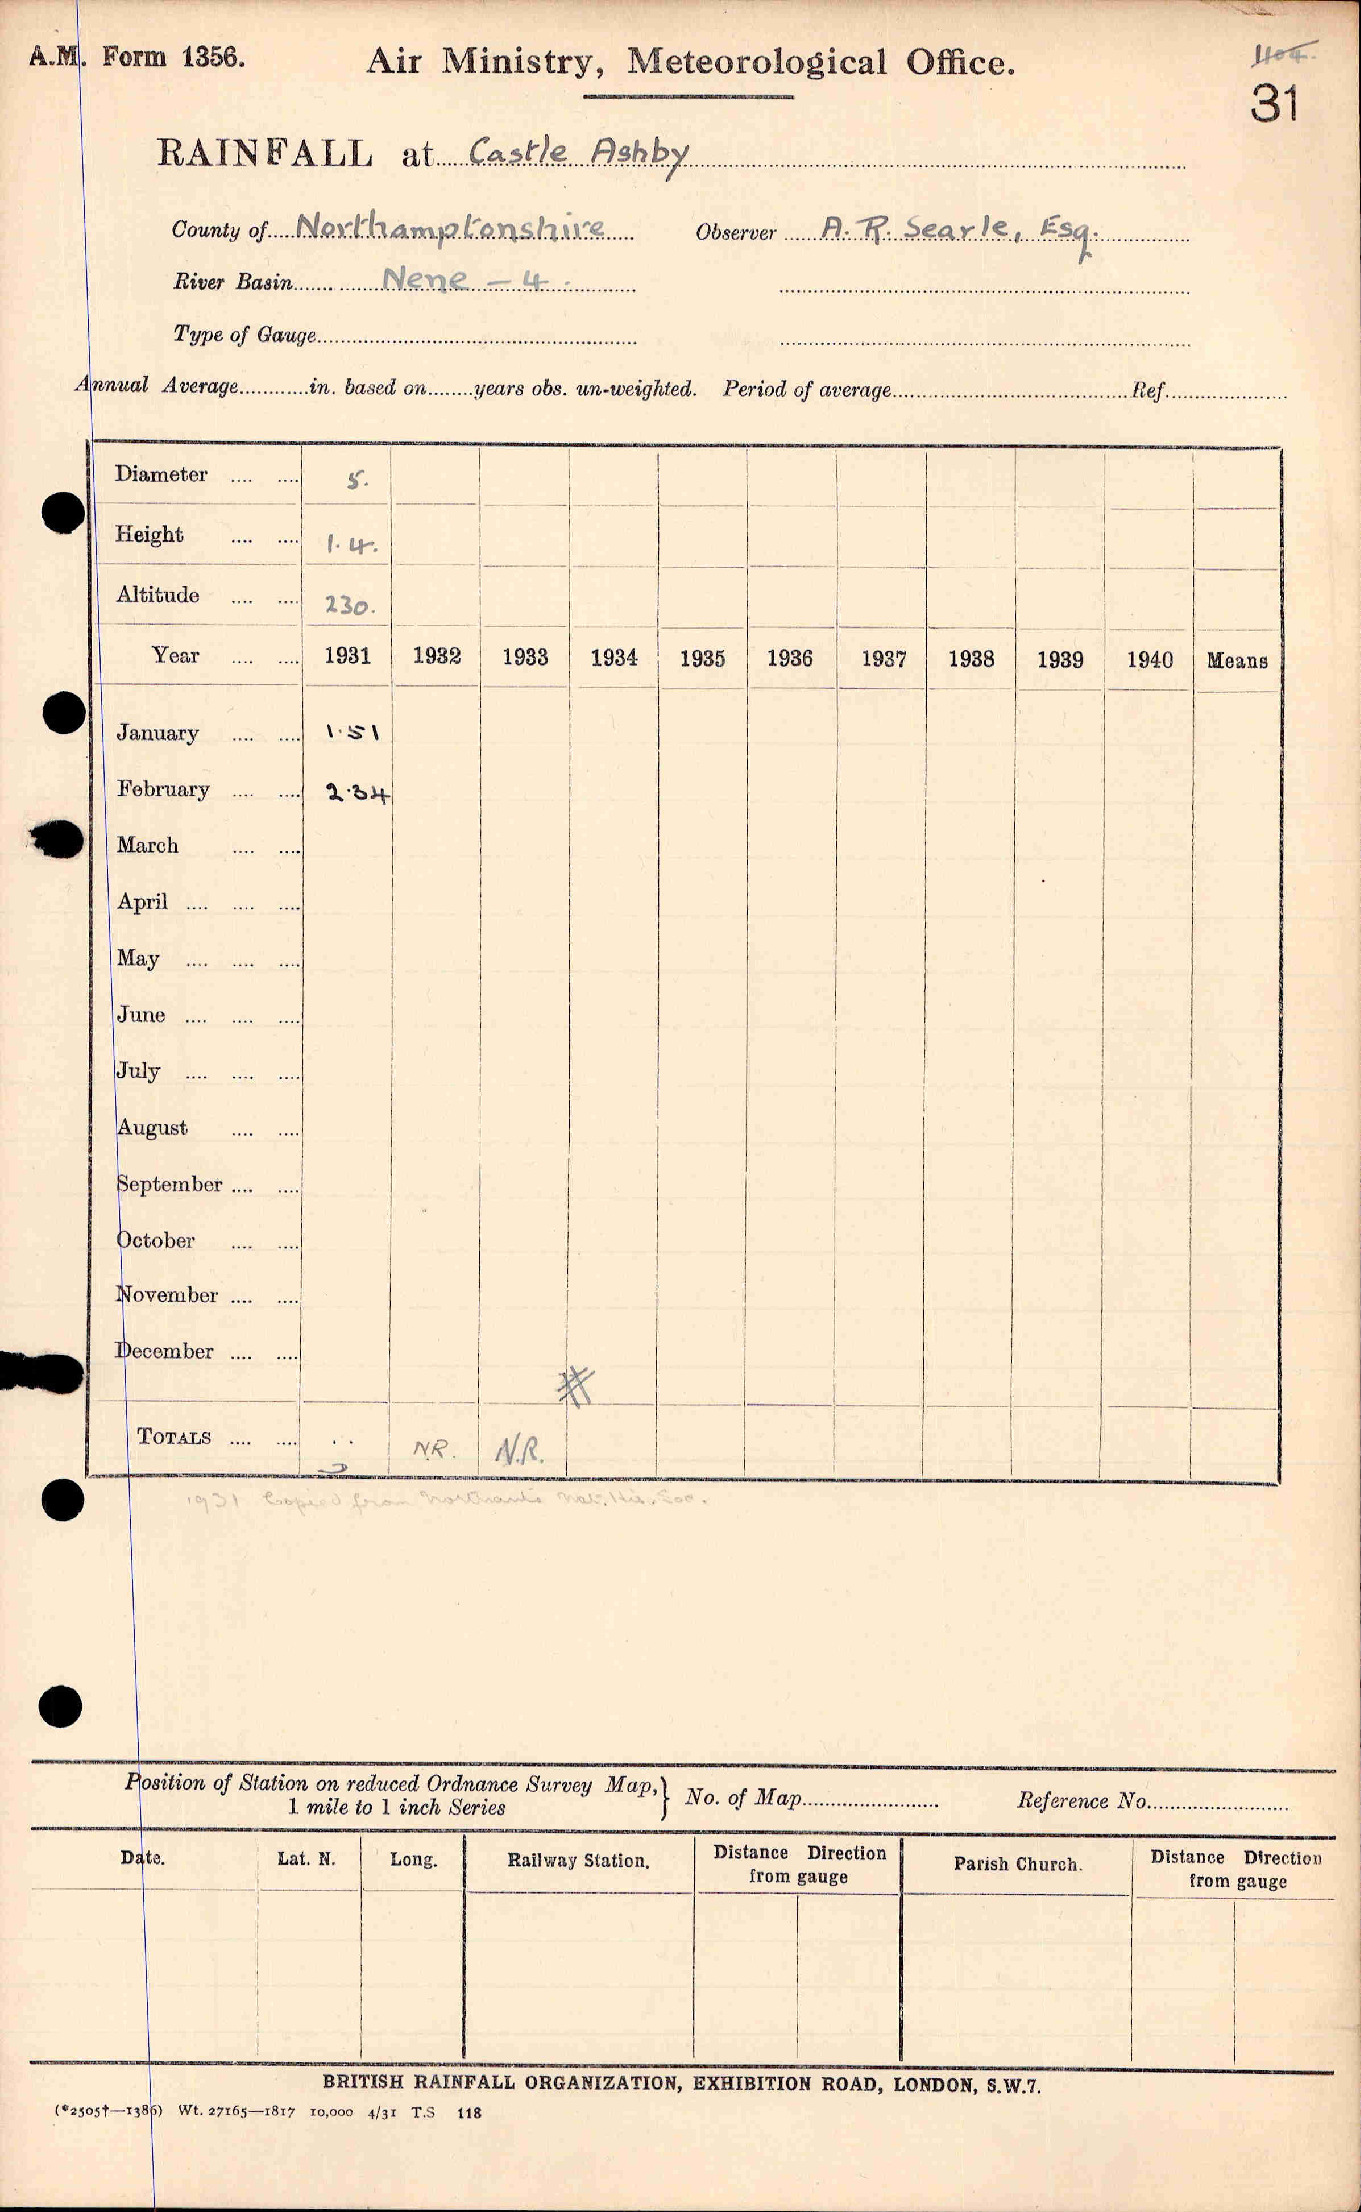 A.M. Form 1356.
Air Ministry, Meteorological Office.
404.
31
RAINFALL at Castle Ashby
County of Northamptonshire Observer A. R. Searle, Esq.
River Basin Nene - 4.
Type of Gauge
Annual Average in. based on years obs. un-weighted. Period of average Ref.
Diameter 5.
Height 1.4.
Altitude 230.
Year 1931 1932 1933 1934 1935 1936 1937 1938 1939 1940 Means
January 1.51
February 2.34
March
April
May
June
July
August
September
October
November
December
TOTALS .. N.R. N.R.
1931 Copied from Northants Nat. His. Soc.
Position of Station on reduced Ordnance Survey Map, 1 mile to 1 inch Series } No. of Map Reference No.
Date. Lat. N. Long. Railway Station. Distance Direction from gauge Parish Church. Distance Direction from gauge
BRITISH RAINFALL ORGANIZATION, EXHIBITION ROAD, LONDON, S.W.7.
(*2505†—1386) Wt. 27165—1817 10,000 4/31 T.S 118